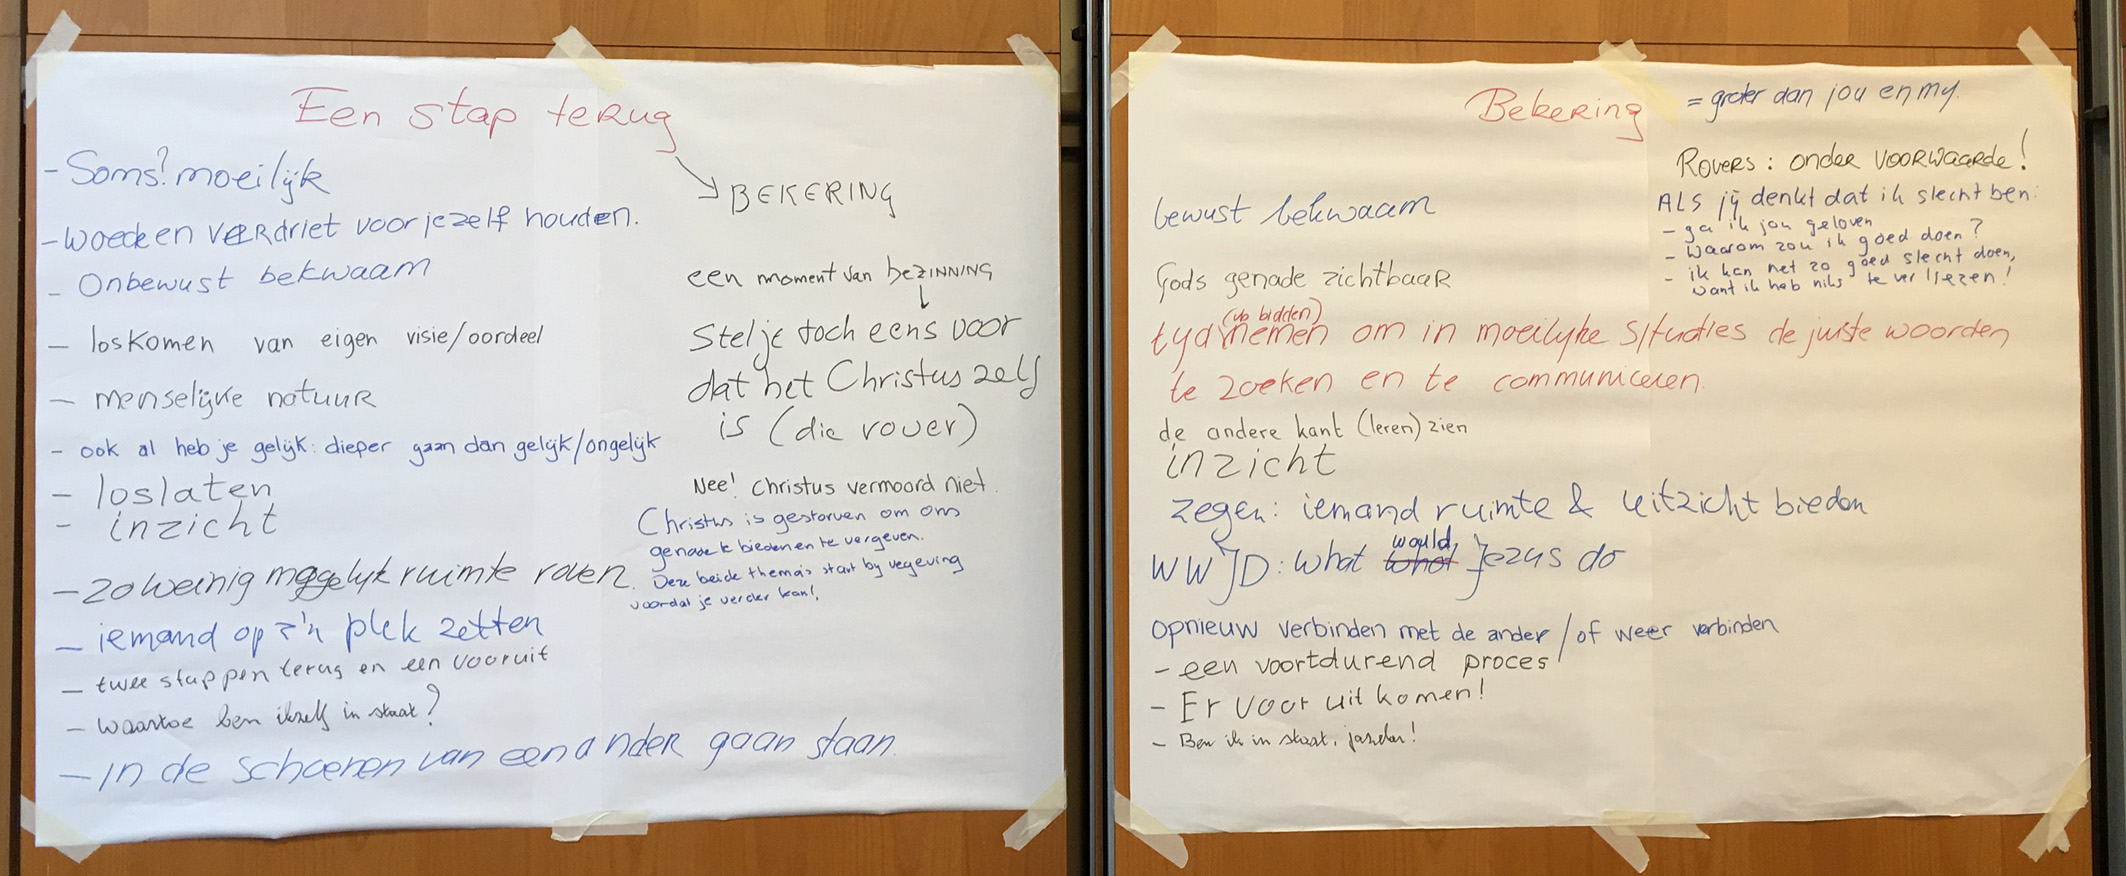 Een stap terug
- Soms? moeilijk
- woede en verdriet voor jezelf houden.
- Onbewust bekwaam
- loskomen van eigen visie/oordeel
- menselijke natuur
- ook al heb je gelijk: dieper gaan dan gelijk/ongelijk
- loslaten
- inzicht
- zo weinig mogelijk ruimte roven.
- iemand op z'n plek zetten
- twee stappen terug en een vooruit
- waartoe ben ikzelf in staat?
- In de schoenen van een ander gaan staan.
BEKERING
een moment van beZINNING
Stel je toch eens voor
dat het Christus zelf
is (die rover)
Nee! Christus vermoord niet.
Christus is gestorven om ons
genade te bieden en te vergeven.
Deze beide thema's start by vergeving
voordat je verder kan!
Bekering = groter dan jou en my.
Rovers: onder VOORWAARDE!
ALS jij denkt dat ik slecht ben:
- ga ik jou geloven
- waarom zou ik goed doen?
- ik kan net zo goed slecht doen,
want ik heb niks te verliezen!
bewust bekwaam
Gods genade zichtbaar
(vb bidden)
tyd nemen om in moeilyke situaties de juiste woorden
te zoeken en te communiceren.
de andere kant (leren) zien
inzicht
zegen: iemand ruimte & uitzicht bieden
would
WWJD: what what Jezus do
opnieuw verbinden met de ander / of weer verbinden
- een voortdurend proces
- Er voor uit komen!
- Ben ik in staat, jazeker!